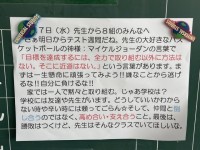 ７日（水）先生から８組のみんなへ
明日からテスト週間だね。先生の大好きなバス
ケットボールの神様：マイケルジョーダンの言葉で
「目標を達成するには、全力で取り組む以外に方法は
ない。そこに近道はない。」という言葉があります。ま
ずは一生懸命に頑張ってみよう！！嫌なことから逃げ
るな！！自分に負けるな！！
家では一人で黙々と取り組む。じゃあ学校は？
学校には友達や先生がいます。どうしていいかわから
ない時や辛い時には頼ってごらん☆そして、仲間と
合うのではなく、高め合い・支え合うこと。最後は、
勝敗はつくけど、先生はそんなクラスでいてほしいな。